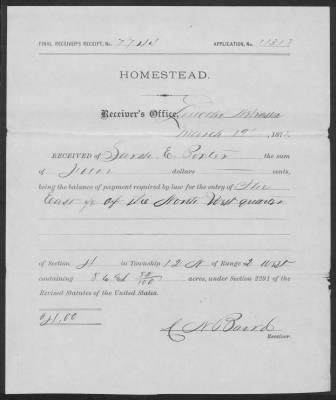 FINAL RECEIVER'S RECEIPT, No. 7743 APPLICATION, No.
HOMESTEAD.
Receiver's Office, Lincoln Nebraska
March 19th, 187
RECEIVED OF Sarah E. Porter the sum
of Four dollars cents,
being the balance of payment required by law for the entry of The
East ½ of the North West quarter
of Section 4 in Township 12 N of Range 2 West
containing 86 50/100 acres, under Section 2291 of the
Revised Statutes of the United States.
$4.00
C N Baird
Receiver.